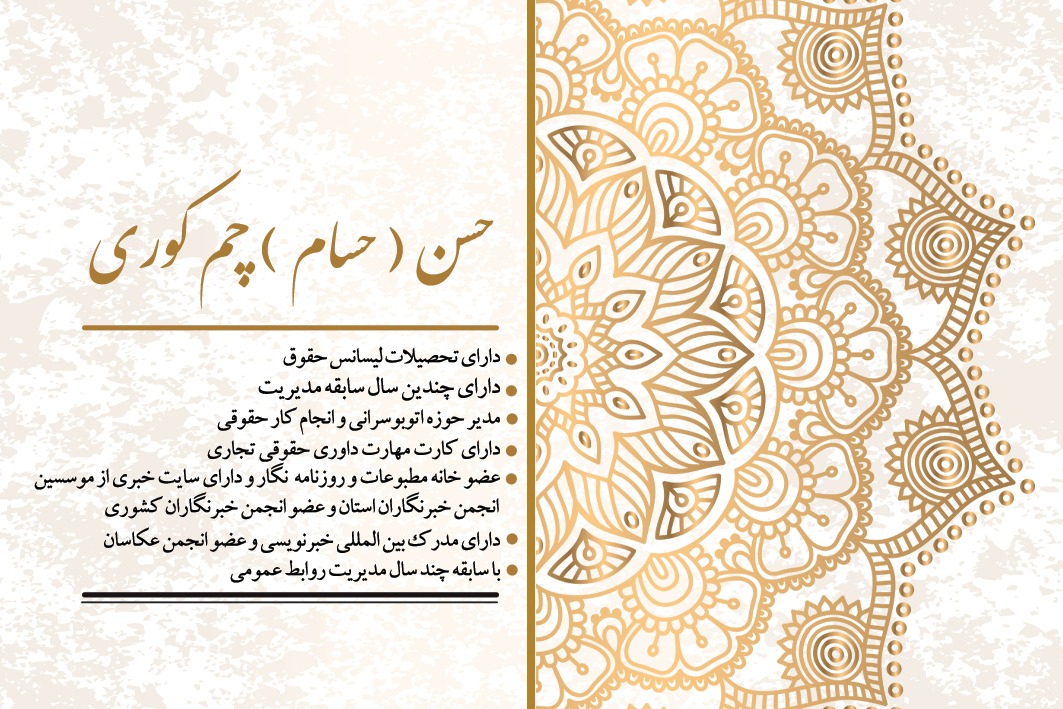 حسن ( حسام ) چم کوری
دارای تحصیلات لیسانس حقوق
دارای چندین سال سابقه مدیریت
مدیر حوزه اتوبوسرانی و انجام کار حقوقی
دارای کارت مهارت داوری حقوقی تجاری
عضو خانه مطبوعات و روزنامه نگار و دارای سایت خبری از موسسین
انجمن خبرنگاران استان و عضو انجمن خبرنگاران کشوری
دارای مدرک بین المللی خبرنویسی و عضو انجمن عکاسان
با سابقه چند سال مدیریت روابط عمومی